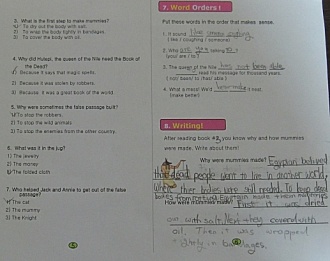 3. What is the first step to make mummies?
1) To dry out the body with salt.
2) To wrap the body tightly in bandages.
3) To cover the body with oil.
4. Why did Hutepi, the queen of the Nile need the Book of the Dead?
1) Because it says that magic spells.
2) Because it was stolen by robbers.
3) Because it was a great book of the world.
5. Why were sometimes the false passage built?
1) To stop the robbers.
2) To stop the wild animals.
3) To stop the enemies from the other country.
6. What was it in the jug?
1) The jewelry
2) The money
3) The folded cloth
7. Who helped Jack and Annie to get out of the false passage?
1) The cat
2) The mummy
3) The Knight
7. Word Orders !
Put these words in the order that makes sense.
1. It sound like someone coughing
( like / coughing / someone)
2. Who are you talking to
(you/ are / to )
3. The queen of the Nile has not been able
read his message for thousand years.
( not/ been/ to /has/ able )
4. What a mess! We'd better make it neat.
(make better)
8. Writing!
After reading book #3, you know why and how mummies
were made. Write about them!
Why were mummies made? Egyptian believed
that dead people went to live in another world,
where their bodies were still needed. To keep dead
How were mummies made? First it was dried
out with salt. Next they covered with
oil. Then it was wrapped
tightly in bandages.